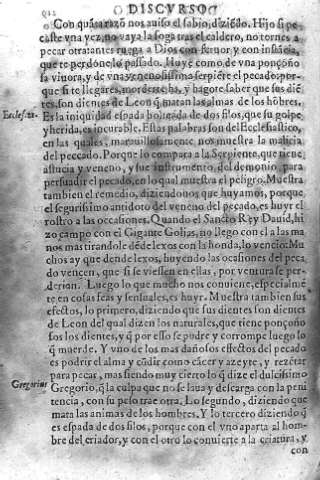 DISCVRSO
Con quãta razõ nos auiso el sabio, diziẽdo. Hijo si pe-
caste vna vez, no vaya la soga tras el caldero, no tornes a
pecar otra, antes ruega a Dios con feruor, y con instãcia,
que te perdone lo passado. Huye como de vna ponçoño
sa viuora, y de vna venenosissima serpiẽte el pecado: por-
que si te llegares, morderteha, y hagote saber que sus diẽ
tes, son dientes de Leon q̃ matan las almas de los hõbres.
Ecclesias. 21.
Es la iniquidad espada de dos filos, que su golpe,
y herida, es incurable. Estas palabras son del Ecclesiastico,
en las quales, marauillosamente nos muestra la malicia
del peccado. Porque lo compara a la Serpiente, que tiene
astucia y veneno, y fue instrumento del demonio, para
persuadir el pecado, en lo qual muestra el peligro. Muestra
tambien el remedio, diziendo nos que huyamos, porque
el segurissimo antidoto del veneno del pecado, es huyr el
rostro a las ocasiones. Quando el Sancto Rey Dauid, hi
zo campo con el Gigante Golias, no llego con el a las ma
nos mas tirandole dẽde lexos con la honda, lo vencio. Mu
chos ay que dende lexos, huyendo las ocasiones del peca
do vencen, que si se viessen en ellas, por ventura se per-
derian. Luego lo que mucho nos conuiene, especialmẽ
te en cosas feas y sensuales, es huyr. Muestra tambien sus
efectos, lo primero, diziendo que sus dientes son dientes
de Leon del qual dizen los naturales, que tiene ponçoño
sos los dientes, y q̃ por esso se pudre y corrompe luego lo
q̃ muerde. Y vno de los mas dañosos effectos del pecado
es podrir el alma y cũdir como cãcer y azeyte, y rezẽtar
para pecar, mas siendo muy cierto lo q̃ dize el dulcissimo
Gregorius
Gregorio, q̃ la culpa que no se laua y descarga con la peni
tencia, con su peso trae otra. Lo segundo, diziendo que
mata las animas de los hombres. Y lo tercero diziendo q̃
es espada de dos filos, porque con el vno aparta al hom-
bre del criador, y con el otro lo conuierte a la criatura, y
con